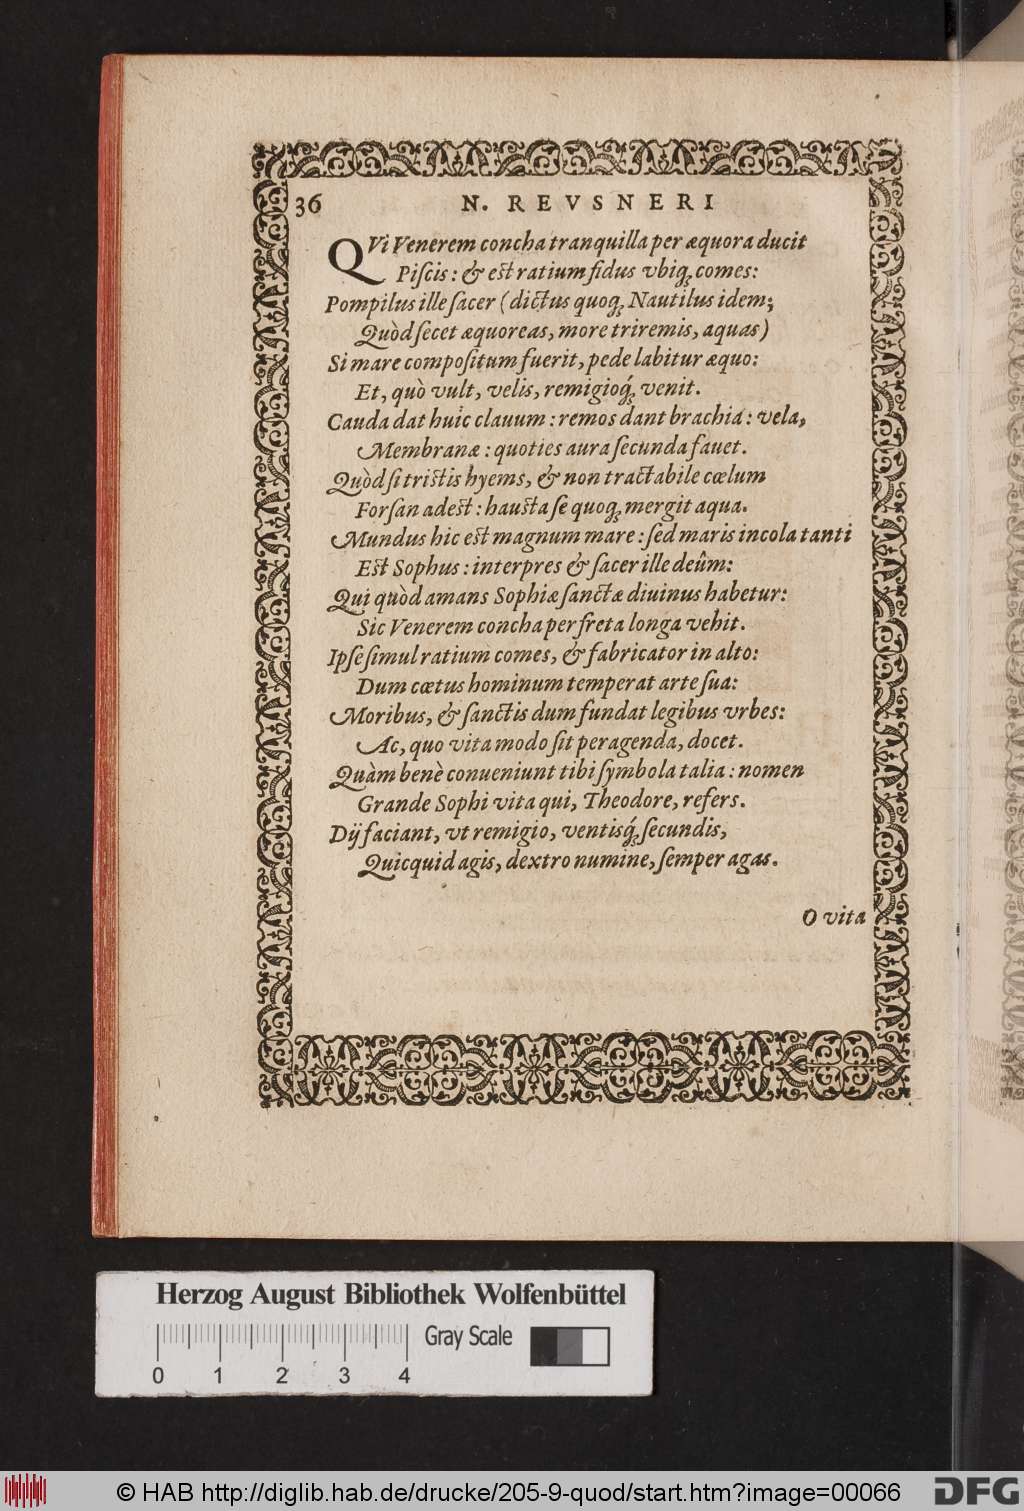 36 N. REVSNERI
QVi Venerem concha tranquilla per æquora ducit
Piſcis: & eſt ratium fidus vbiq́; comes:
Pompilus ille ſacer (dictus quoq; Nautilus idem;
Quòd ſecet æquoreas, more triremis, aquas)
Si mare compoſitum fuerit, pede labitur æquo:
Et, quò vult, velis, remigioq́; venit.
Cauda dat huic clauum: remos dant brachia: vela,
Membranæ: quoties aura ſecunda fauet.
Quòd ſi triſtis hyems, & non tractabile cœlum
Forſan adeſt: hauſta ſe quoq; mergit aqua.
Mundus hic eſt magnum mare: ſed maris incola tanti
Eſt Sophus: interpres & ſacer ille deûm:
Qui quòd amans Sophiæ ſanctæ diuinus habetur:
Sic Venerem concha per freta longa vehit.
Ipſe ſimul ratium comes, & fabricator in alto:
Dum cœtus hominum temperat arte ſua:
Moribus, & ſanctis dum fundat legibus vrbes:
Ac, quo vita modo ſit peragenda, docet.
Quàm benè conueniunt tibi ſymbola talia: nomen
Grande Sophi vita qui, Theodore, refers.
Dij faciant, vt remigio, ventisq́; ſecundis,
Quicquid agis, dextro numine, ſemper agas.
O vita
Herzog August Bibliothek Wolfenbüttel
Gray Scale
0 1 2 3 4
© HAB http://diglib.hab.de/drucke/205-9-quod/start.htm?image=00066
DFG